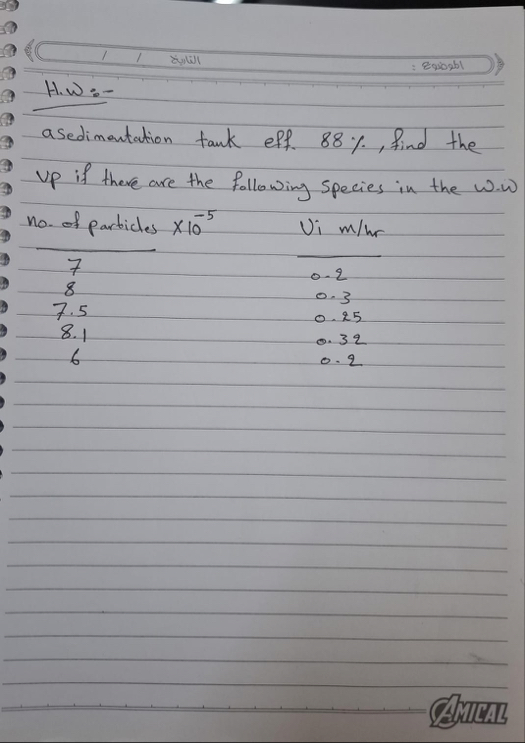 الموضوع : التاريخ / /
H.W:-
a sedimentation tank eff. 88 %, find the
vp if there are the following species in the w.w
no. of particles x10^-5 Vi m/hr
7 0.2
8 0.3
7.5 0.25
8.1 0.32
6 0.2
AMICAL